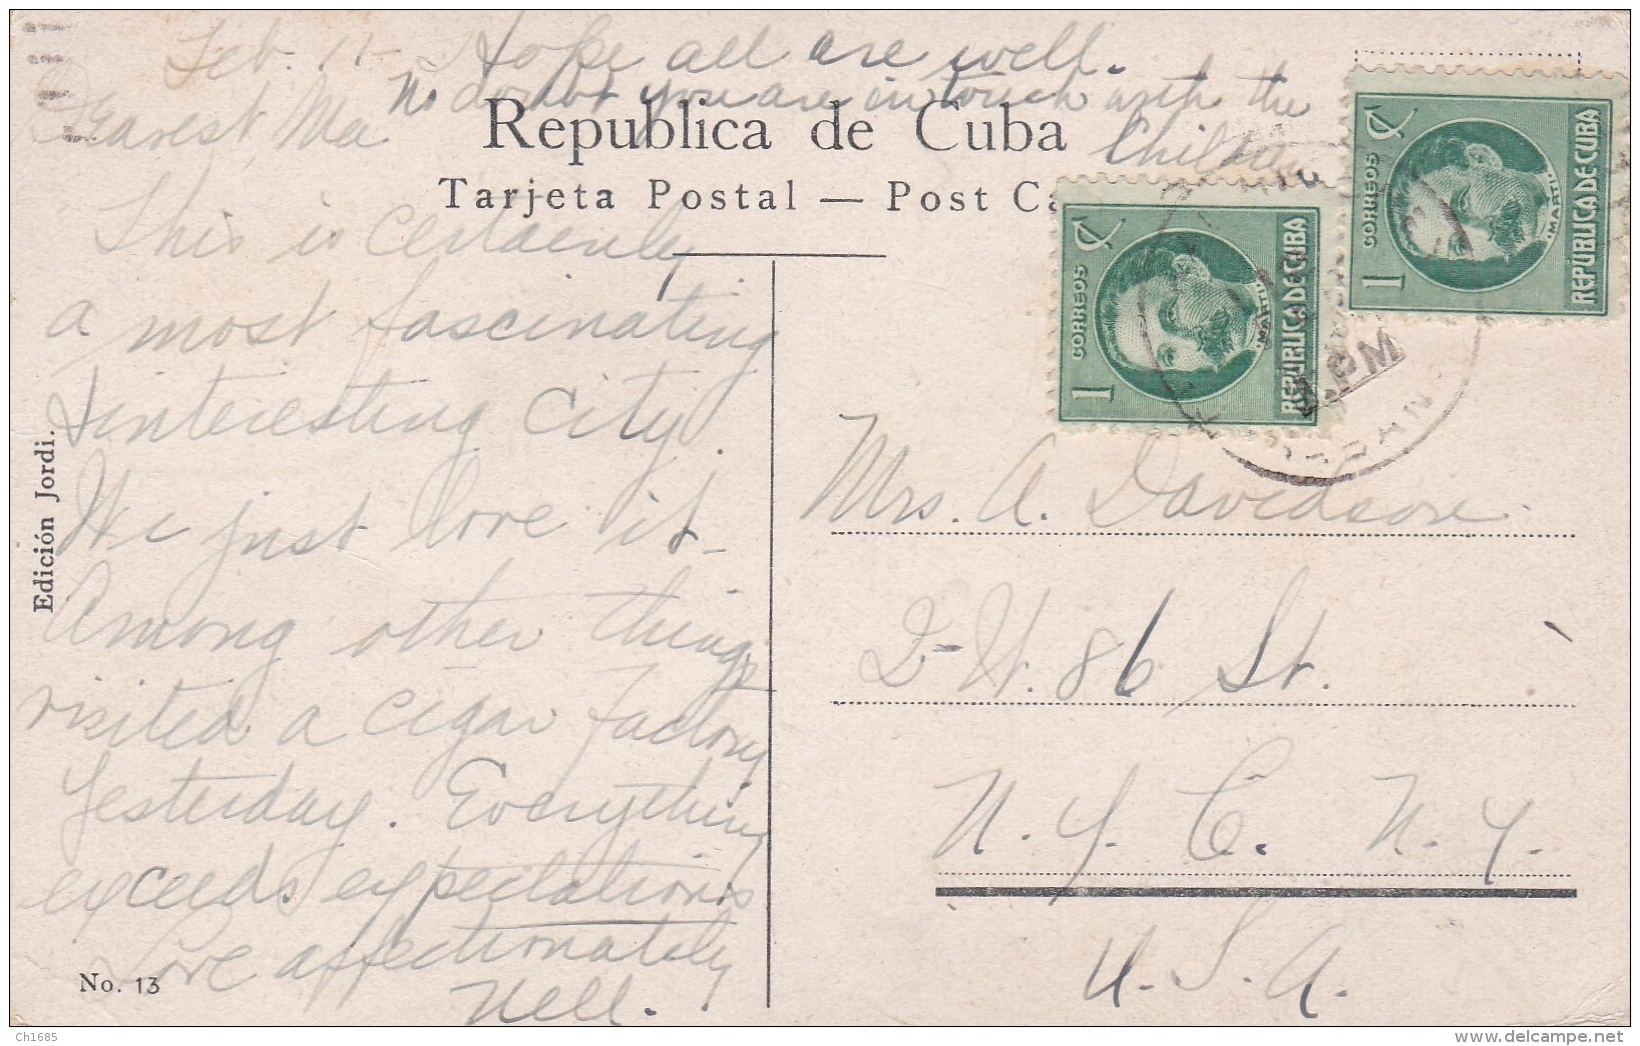 Feb. 11- Hope all are well.
No doubt you are in touch with the
Children
Dearest Ma
Republica de Cuba
Tarjeta Postal — Post Ca
This is certainly
a most fascinating
& interesting city.
We just love it -
Among other things
visited a cigar factory
yesterday. Everything
exceeds expectations
Love affectionately
Nell.
Edición Jordi.
No. 13
1 ¢
CORREOS
MARTI
REPUBLICA DE CUBA
1 ¢
CORREOS
MARTI
REPUBLICA DE CUBA
PM
HABAN
Mrs. A. Davidson.
2-W. 86 St.
N. Y. C. N. Y.
U. S. A.
Ch1685
www.delcampe.net